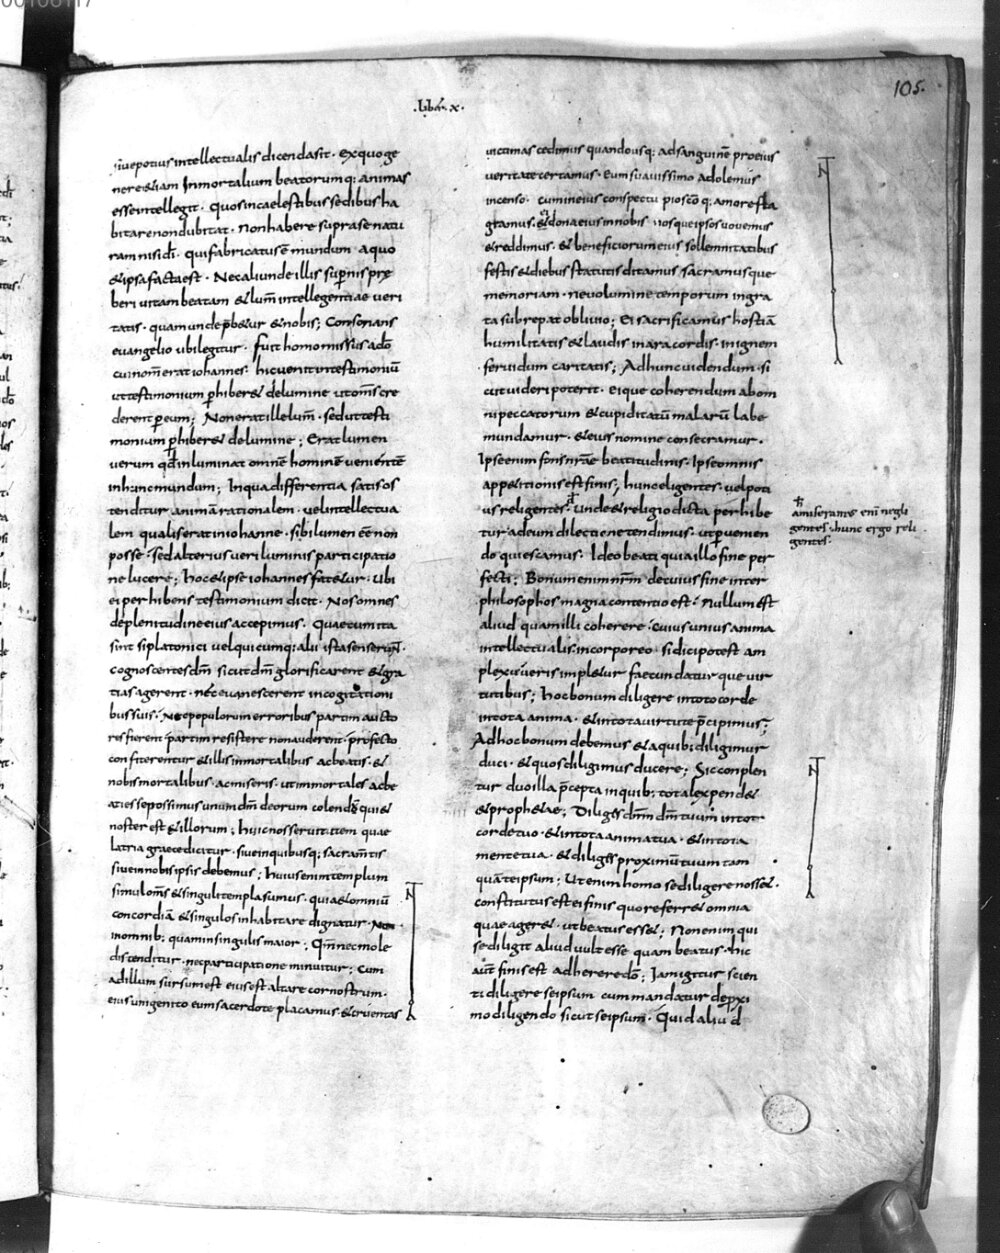 105.
.lib̄. x.
siue potius intellectualis dicenda sit. ex quo ge
nere & iam inmortalium beatorumq; animas
esse intellegit. quos in caelestibus sedibus ha
bitare non dubitat. non habere supra se natu
ram nisi dī. qui fabricatus ē mundum. a quo
& ipsa facta est. Nec aliunde illis supernis pre
beri uitam beatam & lum̄ intellegentiae ueri
tatis. quam unde p̄b&ur & nobis; Consonans
euangelio ubi legitur. fuit homo missus a dō
cui nom̄ erat iohannes. hic uenit in testimoniū
ut testimonium phiber& de lumine ut om̄s cre
derent per eum; Non erat ille lum̄. sed ut testi
monium phiber& de lumine; Erat lumen
uerum qđ inluminat omnē hominē uenientē
in hunc mundum; In qua differentia satis os
tenditur. animā rationalem. uel intellectua
lem qualis erat in iohanne. sibi lumen eē non
posse. sed alterius ueri luminis participatio
ne lucere; hoc & ipse iohannes fat&ur. ubi
ei perhibens testimonium dicit. Nos omnes
de plenitudine eius accepimus. Quae cum ita
sint si platonici uel quicumq; alii ista senserunt.
cognoscentes dm̄ sicut dm̄ glorificarent & gra
tias agerent. nec euanescerent in cogitationi
bus suis. Nec populorum erroribus partim aucto
res fierent partim resistere non auderent. profecto
confiterentur & illis inmortalibus ac beatis. &
nobis mortalibus. ac miseris. ut inmortales ac be
ati esse possimus unum dm̄ deorum colendū qui &
noster est & illorum; huic nos seruitutem quae
latria graece dicitur. siue in quibusq; sacramtis
siue in nobis ipsis debemus; huius enim templum
simul om̄s & singuli templa sumus. quia & omniū
concordiā & singulos inhabitare dignatur. Non
in omnib; quam in singulis maior; Qm̄ nec mole
distenditur. nec participatione minuitur; Cum
ad illum sursum est eius est altare cor nostrum.
eius unigenito eum sacerdote placamus. & cruentas
uictimas cedimus quando usq; ad sanguinē pro eius
ueritate certamus. eum suauissimo adolemus
incenso. cum in eius conspectu pio scōq; amore fla
gramus. ei dona eius in nobis. nosque ipsos uouemus
& reddimus. & beneficiorum eius sollemnitatibus
festis & diebus statutis dicamus. sacramusque
memoriam. ne uolumine temporum ingra
ta subrepat obliuio; Ei sacrificamus hostiā
humilitatis & laudis in ara cordis. in ignem
feruidum caritatis; Ad hunc uidendum. si
cut uideri poterit. eique coherendum ab om
ni peccatorum & cupiditatū malarū labe
mundamur. & eius nomine consecramur.
Ipse enim fons nr̄ae beatitudinis. Ipse omnis
appetitionis est finis; hunc eligentes. uel poti
us religentes. unde & religio dicta perhibe
tur ad eum dilectione tendimus. ut peruenien
do quiescamus. Ideo beati quia illo fine per
fecti; Bonum enim nr̄m de cuius fine inter
philosophos magna contentio est. Nullum est
aliud quam illi coherere. cuius unius anima
intellectualis. incorporeo. si dici potest am
plexu ueris impl&ur fecundaturque uir
tutibus; hoc bonum diligere in toto corde
in tota anima. & in tota uirtute p̄cipimur;
Ad hoc bonum debemus & a quib; diligimur
duci. & quos diligimus ducere; Sic conplen
tur duo illa p̄cepta in quib; tota lex pend&
& proph&ae; Diliges dnm̄ dm̄ tuum in toto
corde tuo. & in tota anima tua. & in tota
mente tua. & diliges proximū tuum tam
quā te ipsum; Ut enim homo se diligere noss&.
constitutus est ei finis quo referr& omnia
quae ager&. ut beatus ess&; Non enim qui
se diligit aliud uult esse quam beatus. hic
aut̄ finis est adherere dō; Iam igitur scien
ti diligere se ipsum cum mandatur de proxi
mo diligendo sicut se ipsum. Quid aliud
amiseramus enī negli
gentes. hunc ergo reli
gentes.